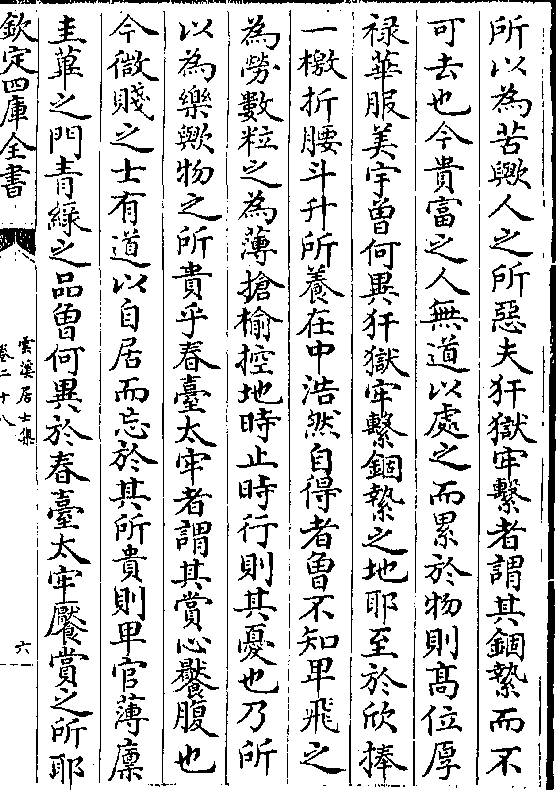 所以為苦歟人之所惡夫犴獄牢繫者謂其錮縶而不
可去也今貴富之人無道以處之而累於物則髙位厚
禄華服美宇曽何異犴獄牢繫錮縶之地耶至於欣捧
一檄折腰斗升所養在中浩然自得者曽不知卑飛之
為勞數粒之為薄搶榆控地時止時行則其憂也乃所
以為樂歟物之所貴乎春臺太牢者謂其賞心饜腹也
今微賤之士有道以自居而忘於其所貴則卑官薄廪
圭蓽之門青緑之品曽何異於春臺太牢饜賞之所耶
欽定四庫全書
雲溪居士集
卷二十八
六